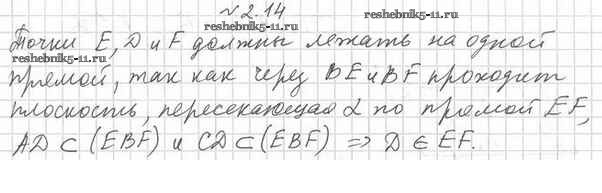 №2.14
reshebnik5-11.ru
reshebnik5-11.ru
Точки E, D и F должны лежать на одной
прямой, так как через BE и BF проходит
плоскость, пересекающая α по прямой EF,
AD ⊂ (EBF) и CD ⊂ (EBF) ⇒ D ∈ EF.
reshebnik5-11.ru